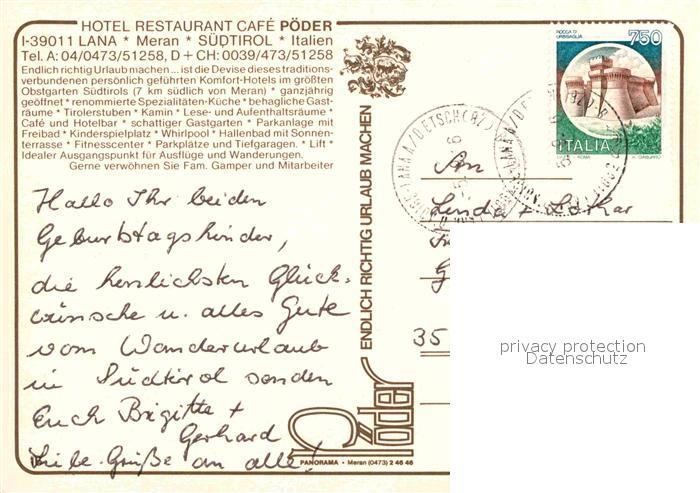 HOTEL RESTAURANT CAFÉ PÖDER
I-39011 LANA * Meran * SÜDTIROL * Italien
Tel. A: 04/0473/51258, D + CH: 0039/473/51258
Endlich richtig Urlaub machen ... ist die Devise dieses traditions-
verbundenen persönlich geführten Komfort-Hotels im größten
Obstgarten Südtirols (7 km südlich von Meran) * ganzjährig
geöffnet * renommierte Spezialitäten-Küche * behagliche Gast-
räume * Tirolerstuben * Kamin * Lese- und Aufenthaltsräume *
Café und Hotelbar * schattiger Gastgarten * Parkanlage mit
Freibad * Kinderspielplatz * Whirlpool * Hallenbad mit Sonnen-
terrasse * Fitnesscenter * Parkplätze und Tiefgaragen. * Lift *
Idealer Ausgangspunkt für Ausflüge und Wanderungen.
Gerne verwöhnen Sie Fam. Gamper und Mitarbeiter
Hallo Ihr beiden
Geburtstagskinder,
die herzlichsten Glück-
wünsche u. alles Gute
vom Wanderurlaub
in Südtirol senden
Euch Brigitte +
Gerhard
Liebe Grüße an alle!
ENDLICH RICHTIG URLAUB MACHEN
Pöder
PANORAMA · Meran (0473) 2 46 46
ROCCA DI
URBISAGLIA
750
ITALIA
ROMA
LANA A/D ETSCH (BZ)
An
Linda + Lothar
35
privacy protection
Datenschutz